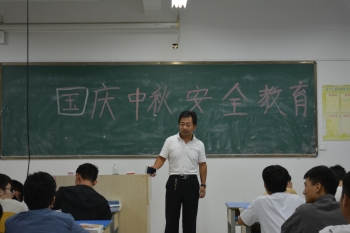 国庆中秋安全教育